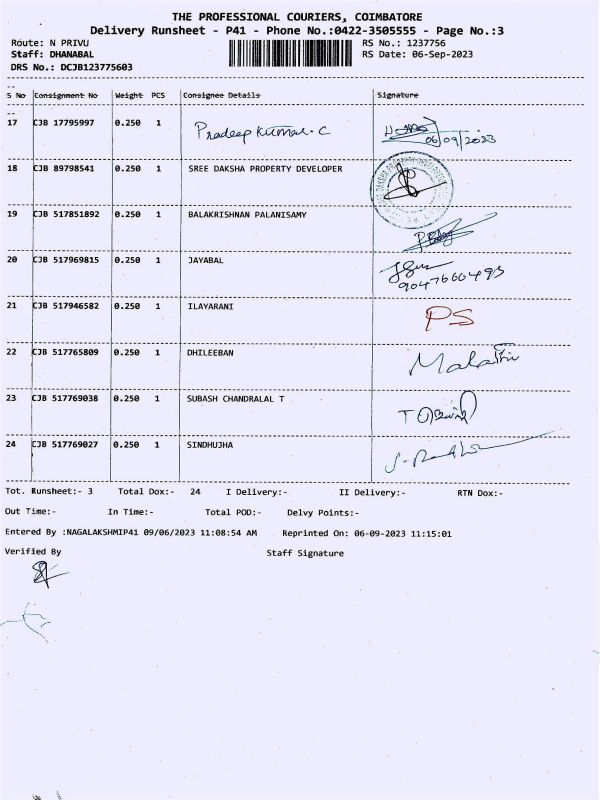 THE PROFESSIONAL COURIERS, COIMBATORE
Delivery Runsheet - P41 - Phone No.:0422-3505555 - Page No.:3
Route: N PRIVU RS No.: 1237756
Staff: DHANABAL RS Date: 06-Sep-2023
DRS No.: DCJB123775603
S No Consignment No Weight PCS Consignee Details Signature
17 CJB 17795997 0.250 1 Pradeep Kumar. C
06/09/2023
18 CJB 89798541 0.250 1 SREE DAKSHA PROPERTY DEVELOPER
19 CJB 517851892 0.250 1 BALAKRISHNAN PALANISAMY
20 CJB 517969815 0.250 1 JAYABAL
9047660495
21 CJB 517946582 0.250 1 ILAYARANI PS
22 CJB 517765809 0.250 1 DHILEEBAN
23 CJB 517769038 0.250 1 SUBASH CHANDRALAL T
24 CJB 517769027 0.250 1 SINDHUJHA
Tot. Runsheet:- 3 Total Dox:- 24 I Delivery:- II Delivery:- RTN Dox:-
Out Time:- In Time:- Total POD:- Delvy Points:-
Entered By :NAGALAKSHMIP41 09/06/2023 11:08:54 AM Reprinted On: 06-09-2023 11:15:01
Verified By Staff Signature